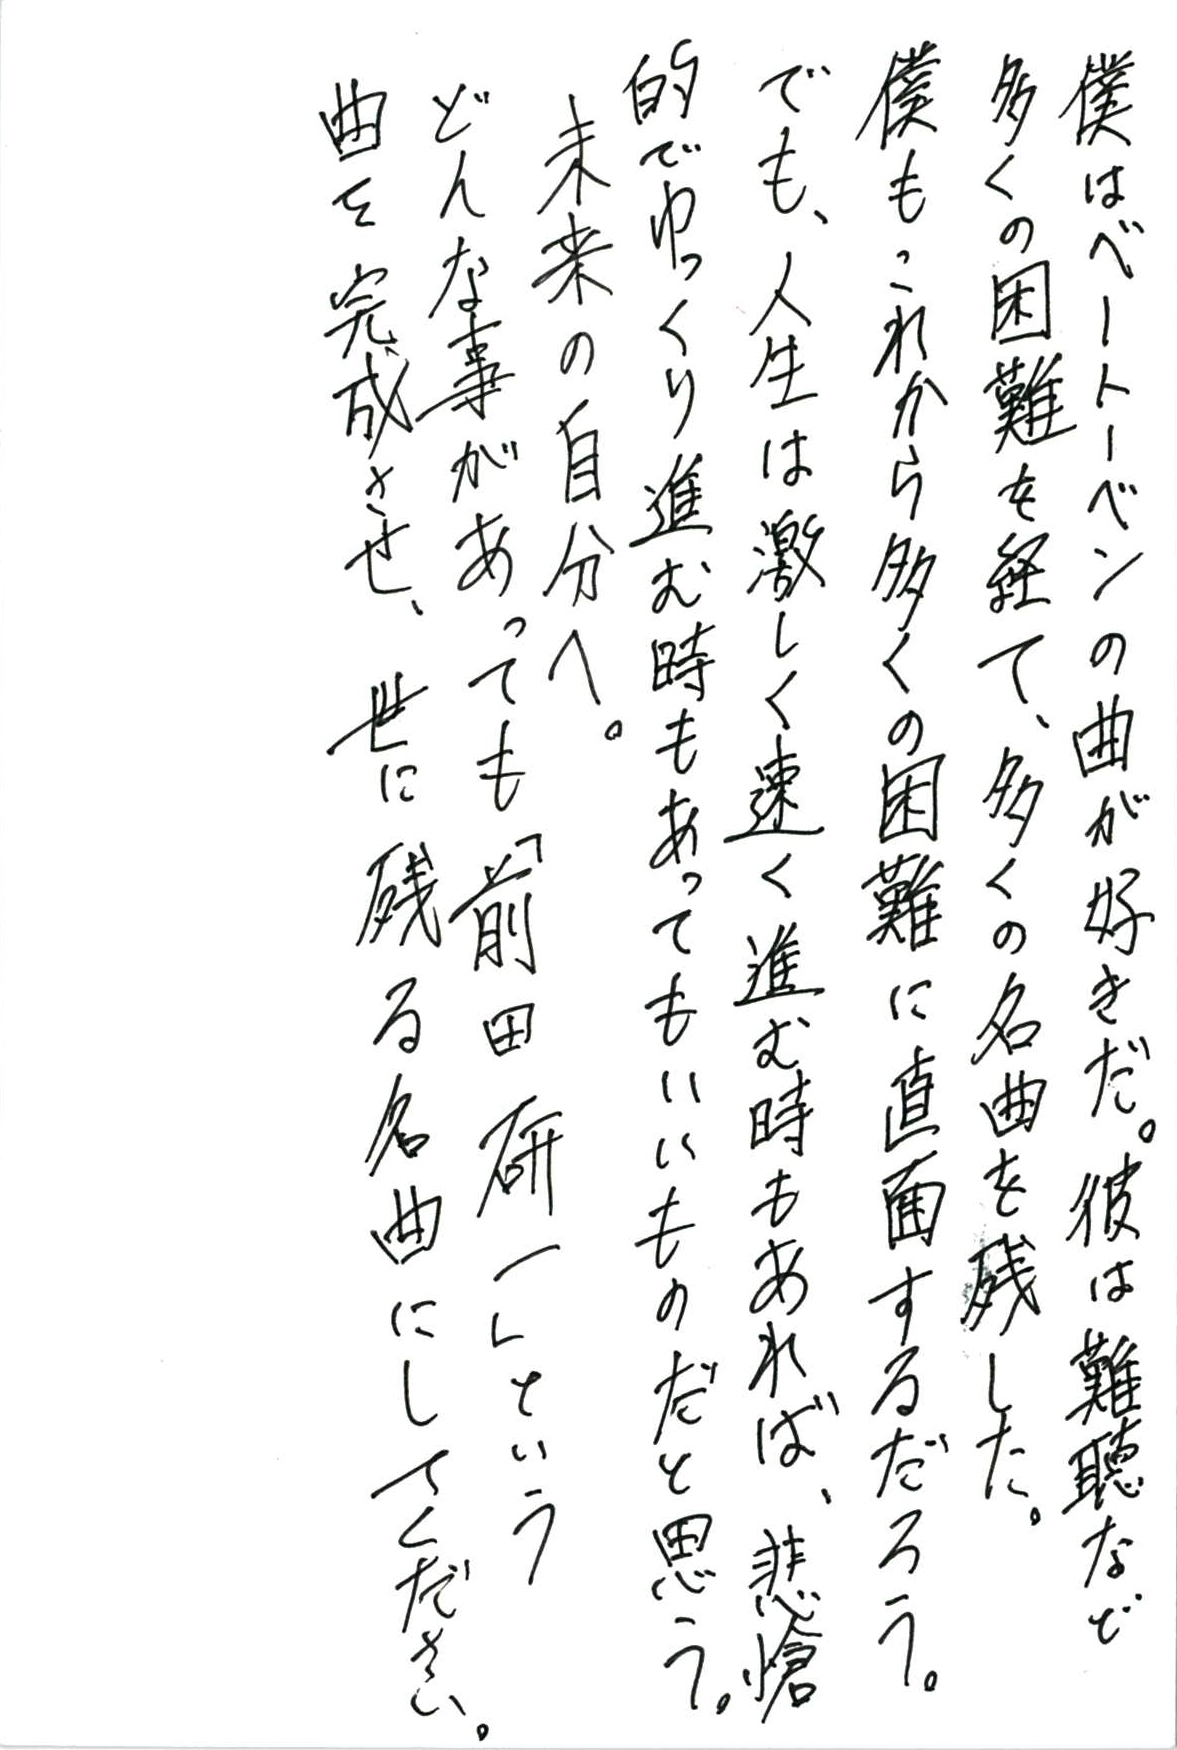 僕はベートーベンの曲が好きだ。彼は難聴など
多くの困難を経て、多くの名曲を残した。
僕もこれから多くの困難に直面するだろう。
でも、人生は激しく速く進む時もあれば、悲愴
的でゆっくり進む時もあってもいいものだと思う。
未来の自分へ。
どんな事があっても「前田研一」という
曲を完成させ、世に残る名曲にしてください。